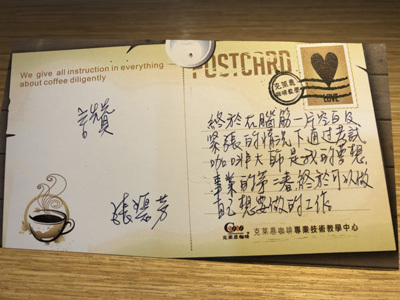 We give all instruction in everything
about coffee diligently
POSTCARD
克萊恩
咖啡教學
LOVE
終於在腦筋一片空白及
緊張的情況下通過考試
咖啡大師是我的夢想,
事業的第二春終於可以做
自己想要做的工作
克萊恩咖啡
克萊恩咖啡專業技術教學中心